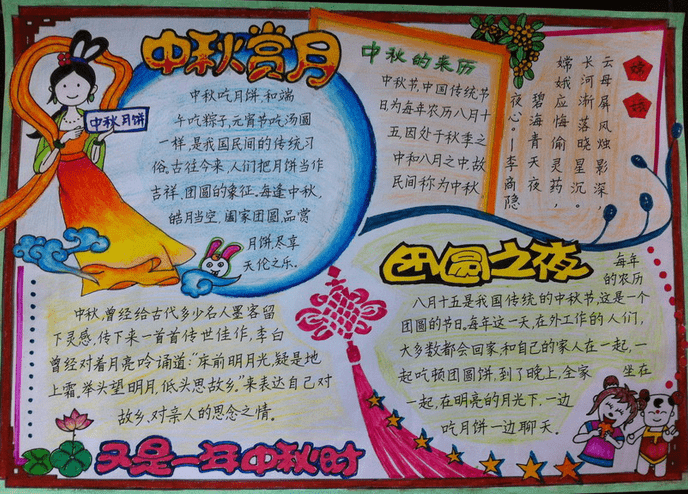 中秋赏月
中秋月饼
中秋吃月饼,和端
午吃粽子,元宵节吃汤圆
一样,是我国民间的传统习
俗.古往今来,人们把月饼当作
吉祥、团圆的象征,每逢中秋,
皓月当空,阖家团圆,品赏
月饼尽享
天伦之乐.
中秋的来历
中秋节,中国传统节
日为每年农历八月十
五因处于秋季之
中和八月之中,故
民间称为中秋
嫦娥
云母屏风烛影深,
长河渐落晓星沉。
嫦娥应悔偷灵药,
碧海青天夜
夜心。—李商隐
团圆之夜
每年
的农历
八月十五是我国传统的中秋节,这是一个
团圆的节日.每年这一天,在外工作的人们,
大多数都会回家,和自己的家人在一起,一
起吃顿团圆饼,到了晚上,全家坐在
一起,在明亮的月光下,一边
吃月饼一边聊天.
中秋,曾经给古代多少名人墨客留
下灵感,传下来一首首传世佳作,李白
曾经对着月亮吟诵道:"床前明月光,疑是地
上霜.举头望明月,低头思故乡."来表达自己对
故乡、对亲人的思念之情.
又是一年中秋时